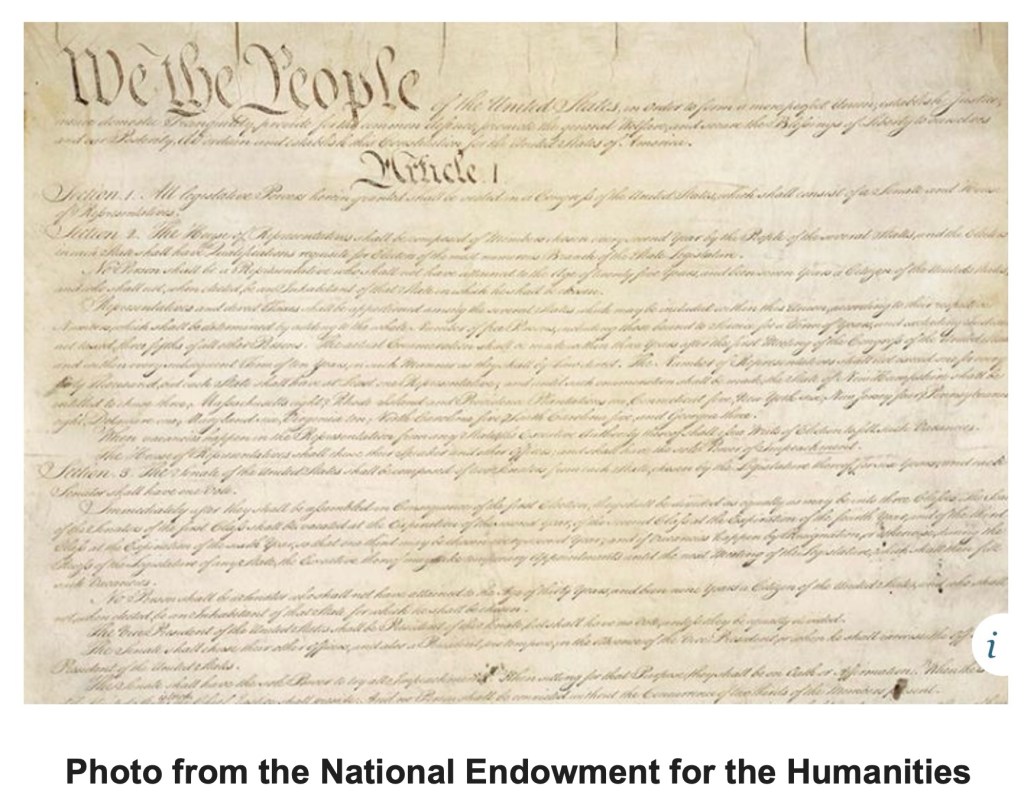 We the People of the United States, in Order to form a more perfect Union, establish Justice,
insure domestic Tranquility, provide for the common defence, promote the general Welfare, and secure the Blessings of Liberty to ourselves
and our Posterity, do ordain and establish this Constitution for the United States of America.
Article. I.
Section. 1. All legislative Powers herein granted shall be vested in a Congress of the United States, which shall consist of a Senate and House
of Representatives.
Section. 2. The House of Representatives shall be composed of Members chosen every second Year by the People of the several States, and the Electors
in each State shall have Qualifications requisite for Electors of the most numerous Branch of the State Legislature.
No Person shall be a Representative who shall not have attained to the Age of twenty five Years, and been seven Years a Citizen of the United States,
and who shall not, when elected, be an Inhabitant of that State in which he shall be chosen.
Representatives and direct Taxes shall be apportioned among the several States which may be included within this Union, according to their respective
Numbers, which shall be determined by adding to the whole Number of free Persons, including those bound to Service for a Term of Years, and excluding Indians
not taxed, three fifths of all other Persons. The actual Enumeration shall be made within three Years after the first Meeting of the Congress of the United States,
and within every subsequent Term of ten Years, in such Manner as they shall by Law direct. The Number of Representatives shall not exceed one for every
thirty Thousand, but each State shall have at Least one Representative; and until such enumeration shall be made, the State of New Hampshire shall be
entitled to chuse three, Massachusetts eight, Rhode Island and Providence Plantations one, Connecticut five, New York six, New Jersey four, Pennsylvania
eight, Delaware one, Maryland six, Virginia ten, North Carolina five, South Carolina five, and Georgia three.
When vacancies happen in the Representation from any State, the Executive Authority thereof shall issue Writs of Election to fill such Vacancies.
The House of Representatives shall chuse their Speaker and other Officers; and shall have the sole Power of Impeachment.
Section. 3. The Senate of the United States shall be composed of two Senators from each State, chosen by the Legislature thereof, for six Years; and each
Senator shall have one Vote.
Immediately after they shall be assembled in Consequence of the first Election, they shall be divided as equally as may be into three Classes. The Seats
of the Senators of the first Class shall be vacated at the Expiration of the second Year, of the second Class at the Expiration of the fourth Year, and of the third
Class at the Expiration of the sixth Year, so that one third may be chosen every second Year; and if Vacancies happen by Resignation, or otherwise, during the
Recess of the Legislature of any State, the Executive thereof may make temporary Appointments until the next Meeting of the Legislature, which shall then fill
such Vacancies.
No Person shall be a Senator who shall not have attained to the Age of thirty Years, and been nine Years a Citizen of the United States, and who shall
not, when elected, be an Inhabitant of that State for which he shall be chosen.
The Vice President of the United States shall be President of the Senate, but shall have no Vote, unless they be equally divided.
The Senate shall chuse their other Officers, and also a President pro tempore, in the Absence of the Vice President, or when he shall exercise the Office of
President of the United States.
The Senate shall have the sole Power to try all Impeachments. When sitting for that Purpose, they shall be on Oath or Affirmation. When the
shall preside: And no Person shall be convicted without the Concurrence of two thirds of the Members present.
i
Photo from the National Endowment for the Humanities